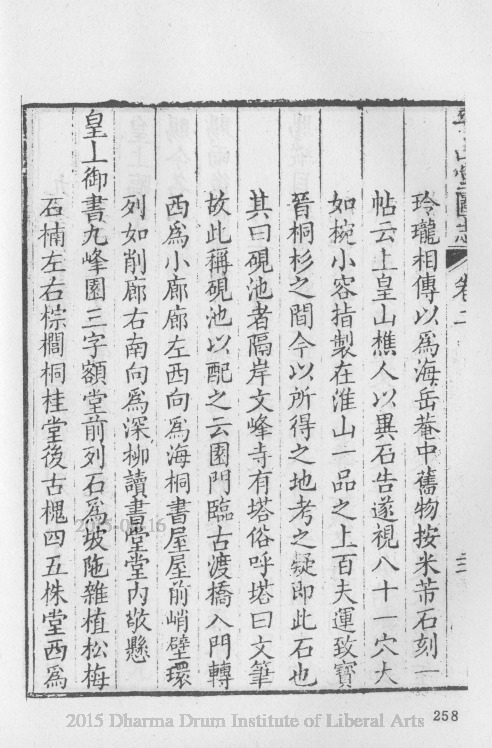 平山堂圖志 卷二
玲瓏相傳以爲海岳菴中舊物按米芾石刻一
帖云上皇山樵人以異石告遂視八十一穴大
如椀小容指製在淮山一品之上百夫運致寶
晉桐杉之間今以所得之地考之疑即此石也
其曰硯池者隔岸文峰寺有塔俗呼塔曰文筆
故此稱硯池以配之云園門臨古渡橋入門轉
西爲小廊廊左西向爲海桐書屋屋前峭壁環
列如削廊右南向爲深柳讀書堂堂內敬懸
皇上御書九峰園三字額堂前列石爲坡陁雜植松梅
石楠左右棕櫚桐桂堂後古槐四五株堂西爲
258
2015 Dharma Drum Institute of Liberal Arts